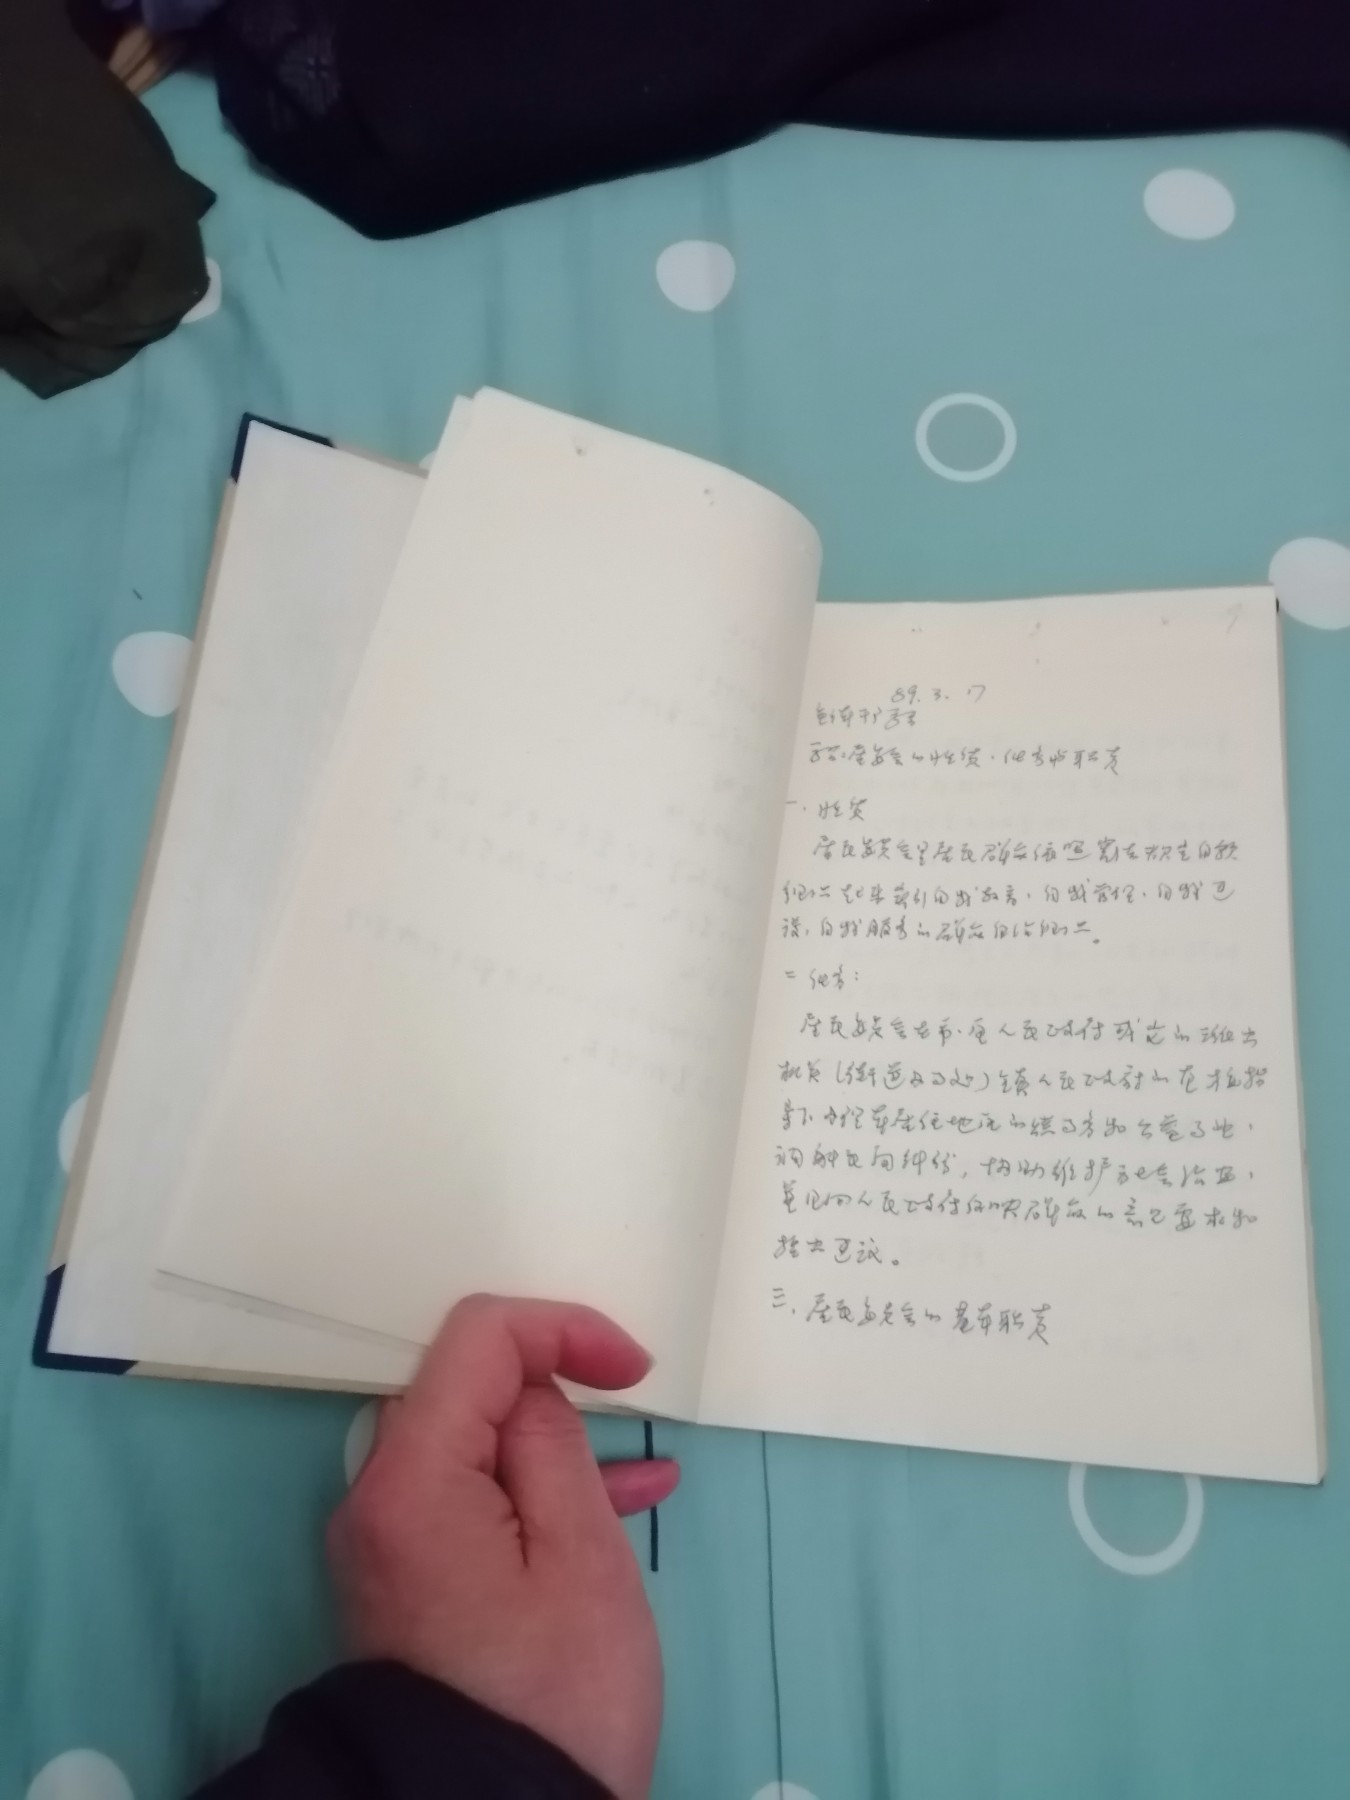 89. 3. 17
居委会的性质、任务和职责
一、性质
居民委员会是居民群众依照宪法规定自愿
组织起来实行自我教育、自我管理、自我建
设、自我服务的群众自治组织。
二 任务:
居民委员会在市、区人民政府或它的派出
机关(街道办事处)镇人民政府的直接指
导下办理本居住地区的公共事务和公益事业,
调解民间纠纷,协助维护社会治安,
并且向人民政府反映群众的意见要求和
提出建议。
三、居民委员会的基本职责